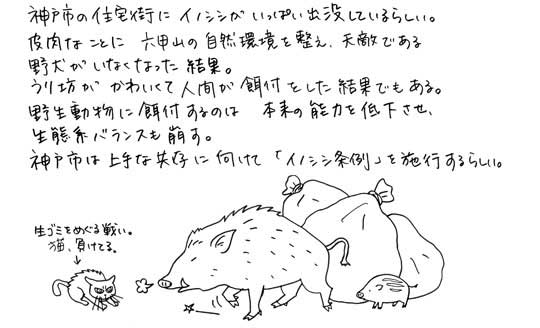 神戸市の住宅街にイノシシがいっぱい出没しているらしい。
皮肉なことに 六甲山の自然環境を整え、天敵である
野犬がいなくなった結果。
うり坊が かわいくて人間が餌付をした結果でもある。
野生動物に餌付するのは 本来の能力を低下させ、
生態系バランスも崩す。
神戸市は上手な共存に向けて「イノシシ条例」を施行するらしい。
生ゴミをめぐる戦い。
猫、負けてる。